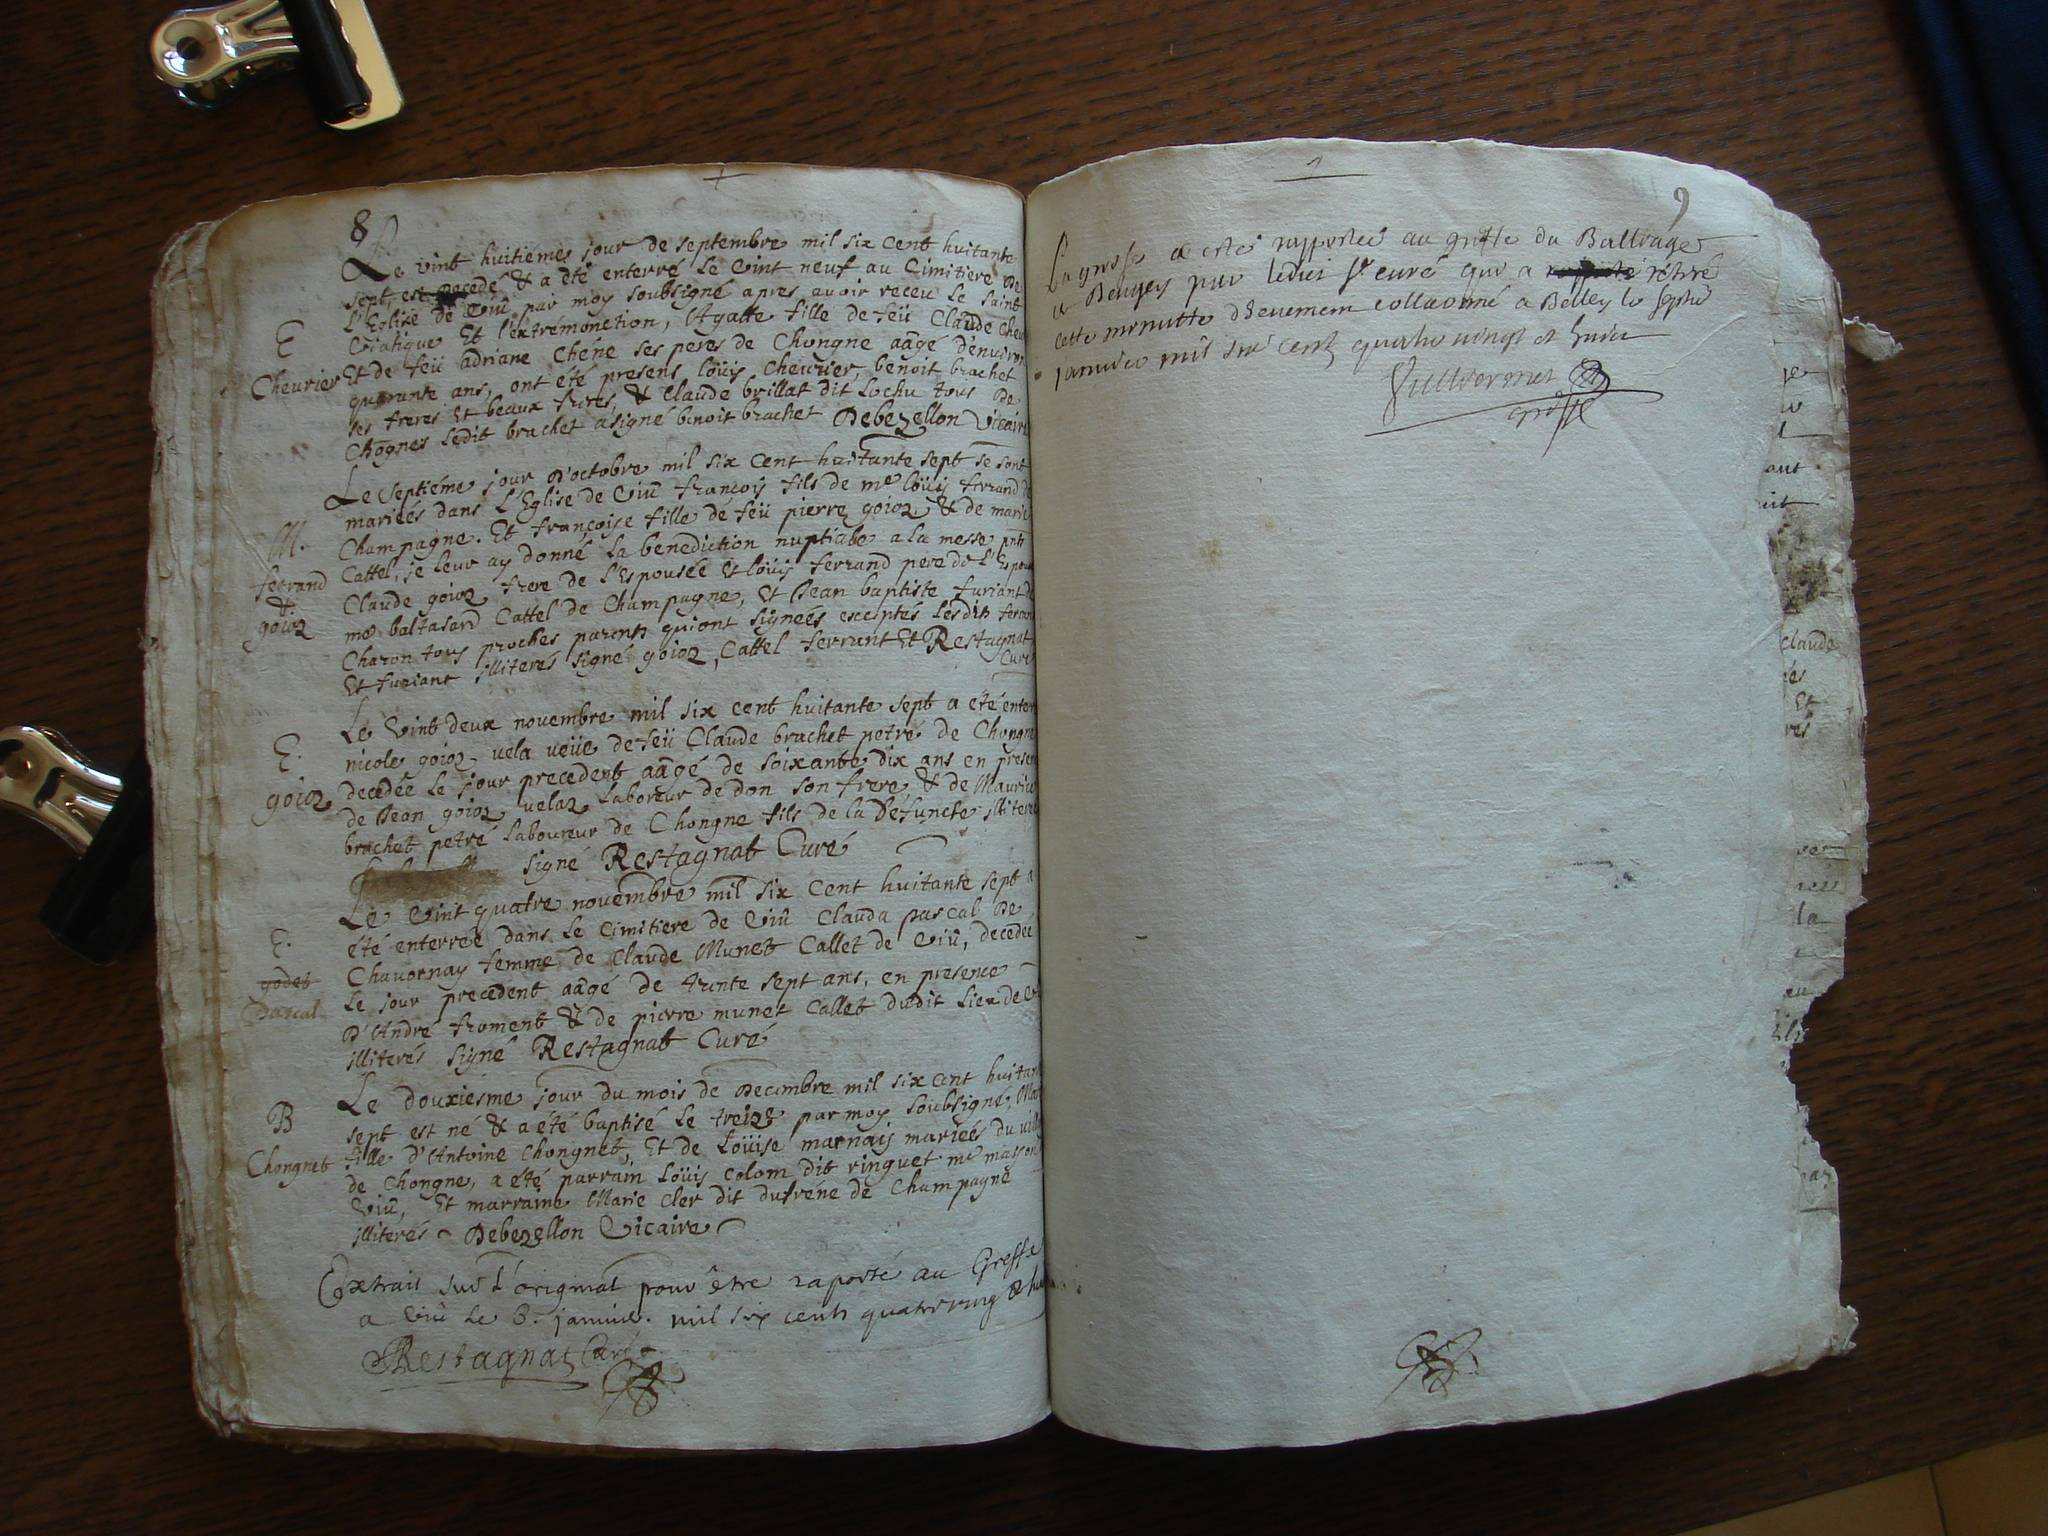 8
Le vint huitiéme jour de septembre mil six cent huitante
sept, est decedé & a été enterré le vint neuf au Cimitiere de
l'Eglise de Viû par moy soubsigné apres avoir receu le saint
E
Viatique Et l'extrémonction, Agatte fille de feü Claude Chev
Cheurier
Et de feü adriane Chéne ses peres de Chongne aâgé d'environ
quarante ans, ont été presens loüis Cheurier, benoit brachet
ses freres Et beaux freres, & Claude brillat dit Lochu tous de
Chognes ledit brachet a signé benoit brachet Debezellon Vicaire
Le Septiéme jour d'octobre mil six cent huitante sept se sont
mariéés dans L'Eglise de Viû françois fils de me loüis ferrand de
M.
Champagne. Et françoise fille de feü pierre goioz & de marie
ferrand
Cattel, je leur ay donné la benediction nuptiale a la messe pnts
&
Claude goioz frere de l'Espousée Et loüis ferrand pere de l'Espoux
goioz
me baltasard Cattel de Champagne, Et Jean baptiste furiant de
Charon tous proches parents qui ont signéés exceptés lesdits ferrand
Et furiant illiterés signé goioz, Cattel ferrant Et Restagnat
Curé
Le Vint deux novembre mil six cent huitante sept a été enter
E.
nicole goioz vela veüe de feü Claude brachet petré de Chongne
goioz
decedée le jour precedent aâgé de soixante dix ans en presen
de Jean goioz velaz laboreur de don son frere & de Maurice
brachet petré laboureur de Chongne fils de la Défuncte illiteré
signé Restagnat Curé
Le Vint quatre novembre mil six cent huitante sept a
E.
été enterreé dans le Cimitiere de Viû Clauda pascal de
godet
Chavornay femme de Claude Munet Callet de Viû, decedée
Pascal
le jour precedent aâgé de trente sept ans, en presence
d'André froment & de pierre munet Callet dudit lieu de Vi
illiterés signé Restagnat Curé
Le douxiésme jour du mois de Decembre mil six cent huitan
B
sept est né & a été baptisé le treize par moy soubsigné, Ma
Chongnet
fille d'Antoine Chongnet, Et de Loüise marnais mariéés du vill
de Chongne, a été parrain Loüis colom dit ringuet me masson
Viû, Et marraine Marie Cler dit dufréne de Champagne
illiterés Debezellon Vicaire
Extrait sur l'original pour être raporté au Greffe
a Viû le 3. janvier. mil six cents quatrevingt & hu
Restagnat Curé
9
La grosse a esté rapportée au greffe du Balliage
de Beugey par ledit Sr curé qui a retiré
cette minutte deuement collationné a Belley le septie
janvier mil six cent quatre vingt et huict
Vullliermet
greffe
Claude
Et
la